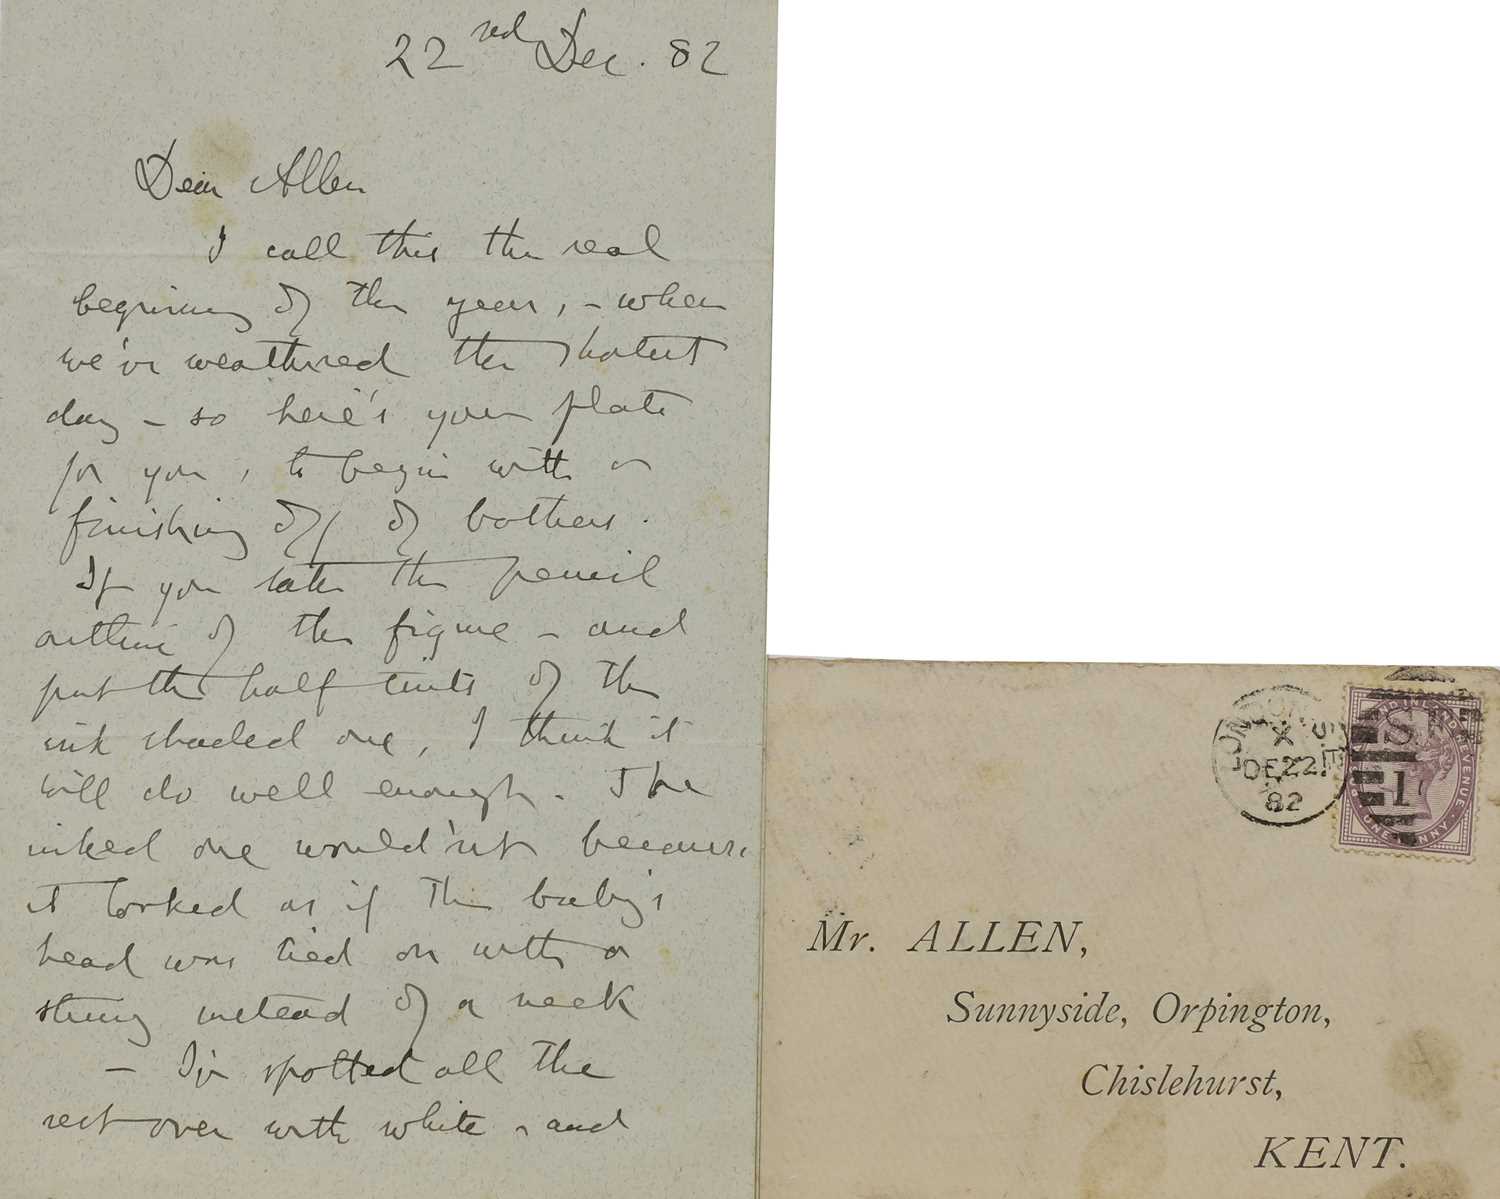 22nd Dec. 82
Dear Allen
I call this the real
beginning of the year, – when
we've weathered the shortest
day – so here's your plate
for you, to begin with a
finishing off of bothers.
If you take the pencil
outline of the figure – and
put the half tints of the
ink shaded one, I think it
will do well enough. The
inked one would'nt because
it looked as if the baby's
head was tied on with a
string instead of a neck
– I've spotted all the
rest over with white, and
LONDON S.E
X
DE 22
82
S.E.
1
POSTAGE AND INLAND REVENUE
ONE PENNY
Mr. ALLEN,
Sunnyside, Orpington,
Chislehurst,
KENT.